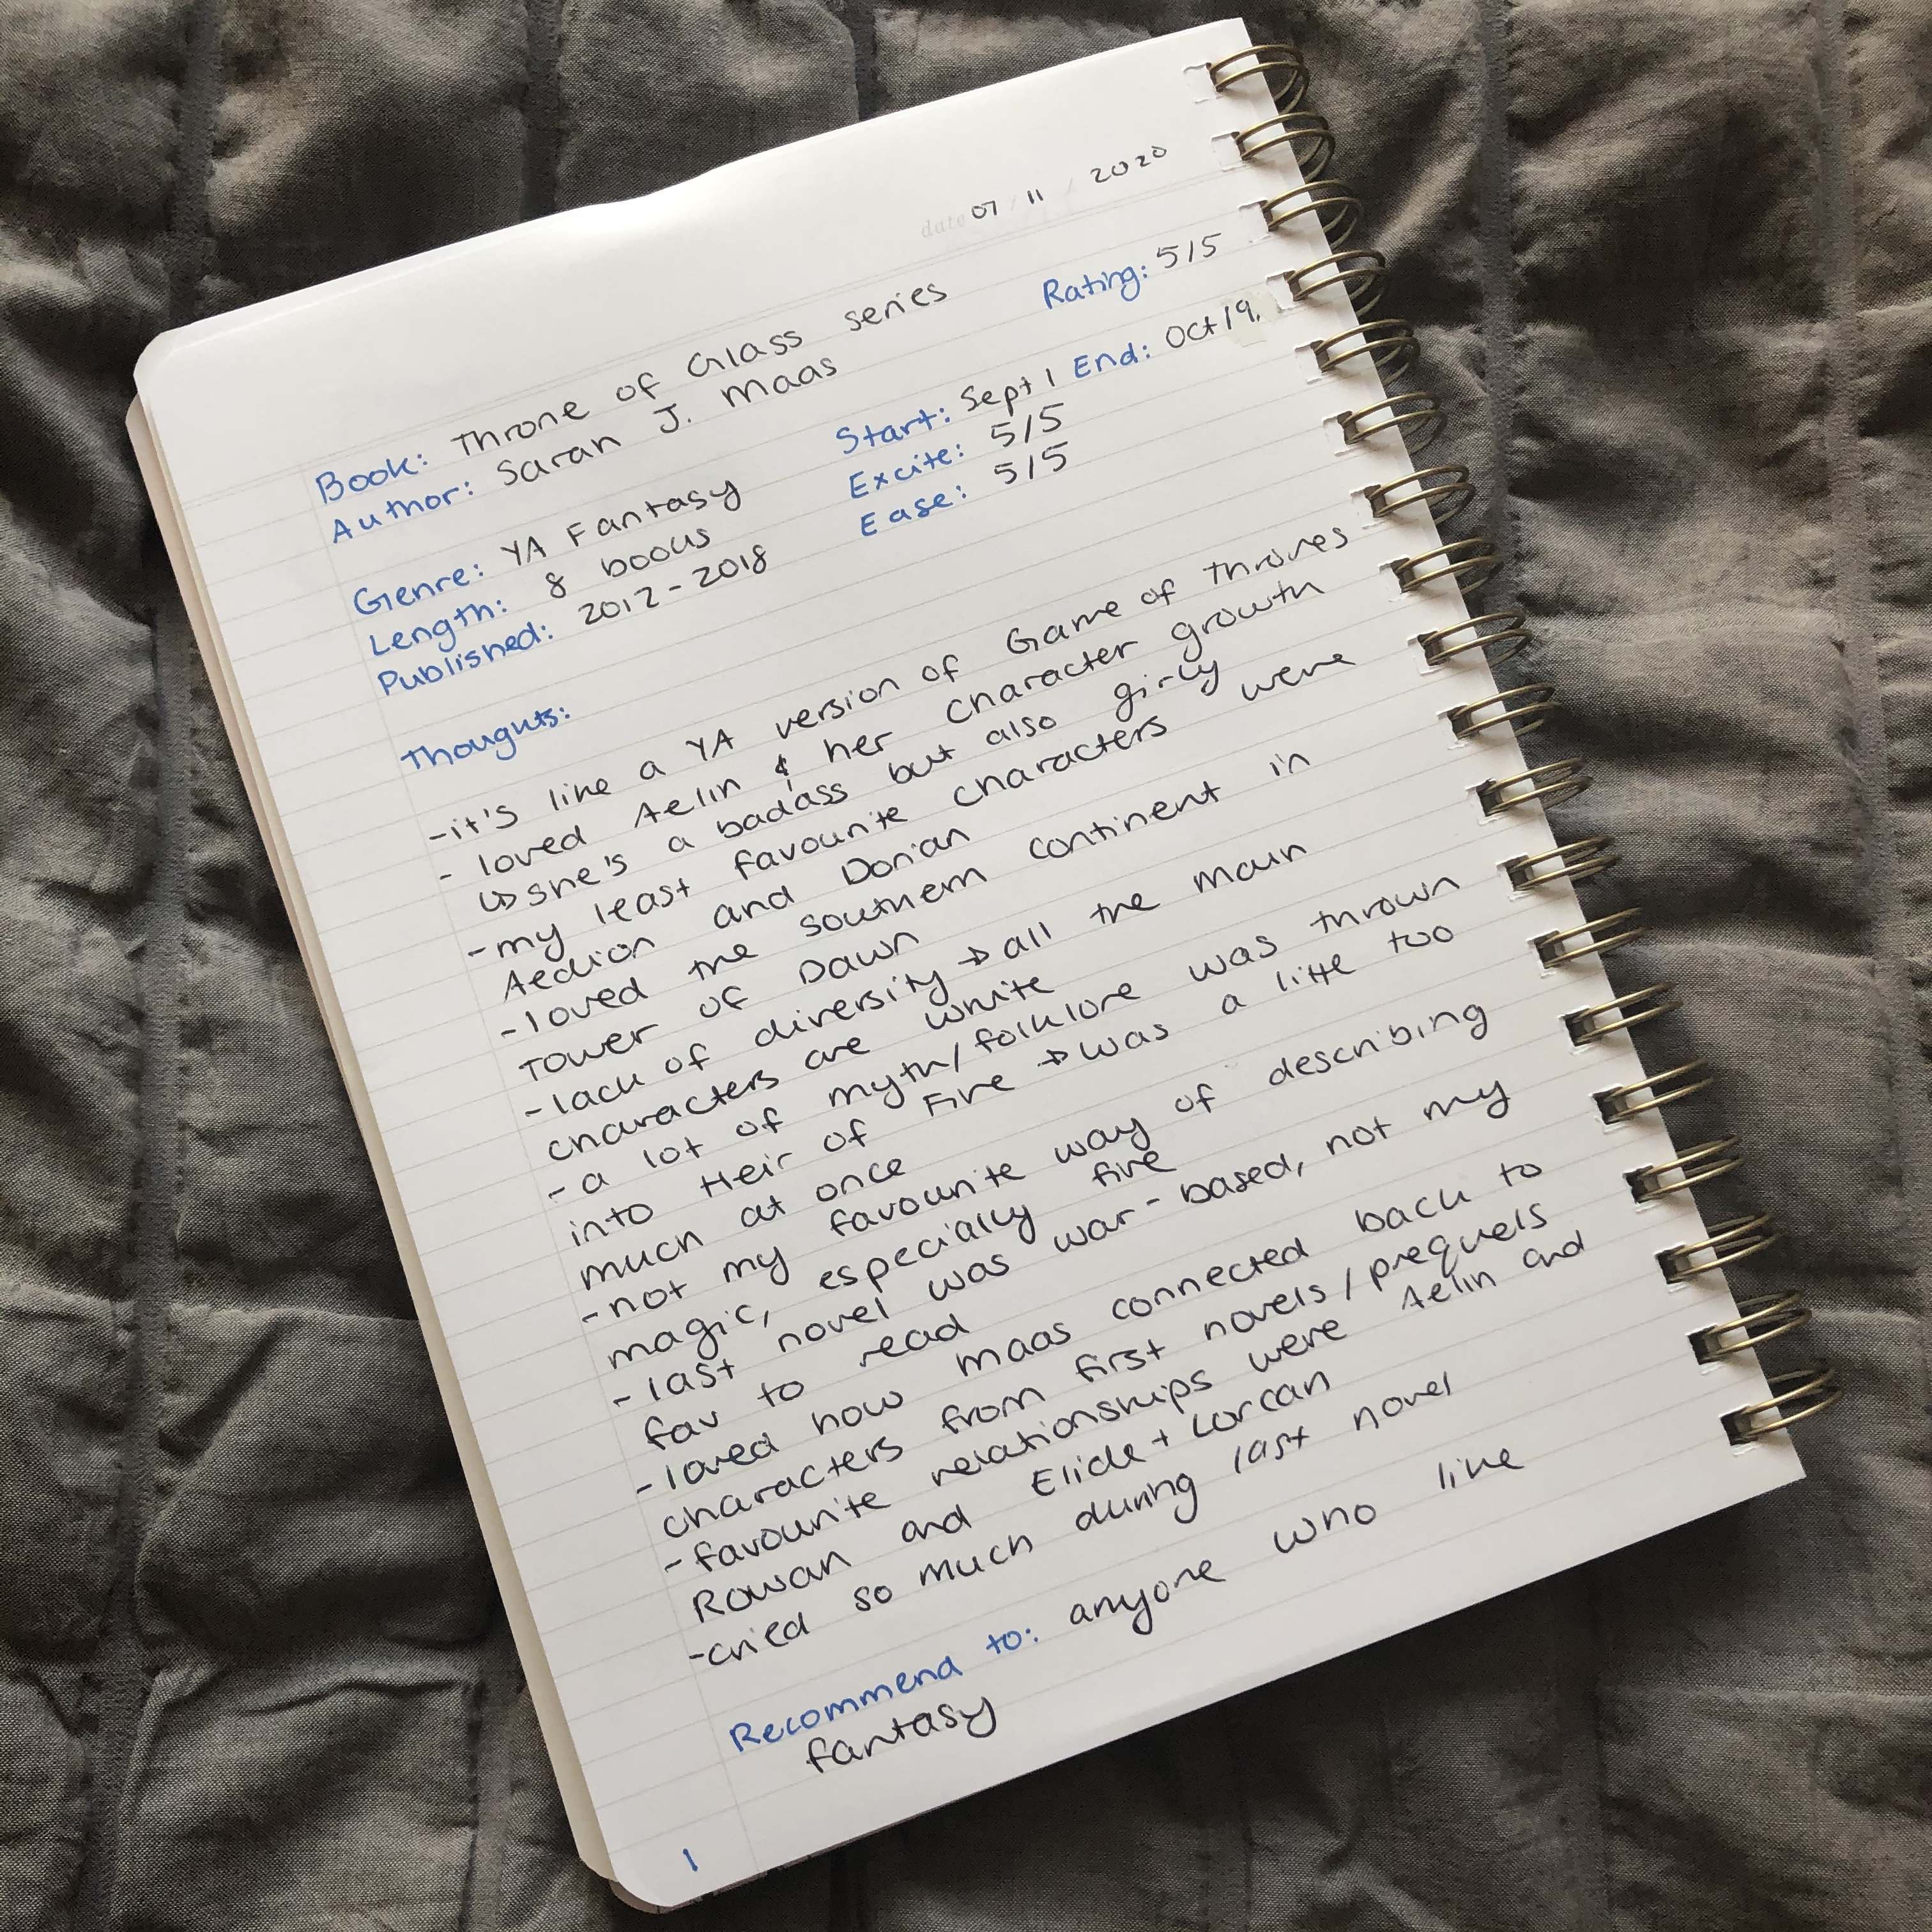 date 07 / 11 / 2020
Book: Throne of Glass series
Author: Sarah J. Maas
Rating: 5/5
Genre: YA Fantasy
Length: 8 books
Published: 2012-2018
Start: Sept 1 End: Oct 19.
Excite: 5/5
Ease: 5/5
Thoughts:
-it's like a YA version of Game of Thrones
- loved Aelin & her character growth
↳ she's a badass but also girly
-my least favourite characters were
Aedion and Dorian
-loved the southern continent in
Tower of Dawn
-lack of diversity → all the main
characters are white
- a lot of myth/folklore was thrown
into Heir of Fire → was a little too
much at once
-not my favourite way of describing
magic, especially fire
-last novel was war-based, not my
fav to read
-loved how Maas connected back to
characters from first novels/prequels
-favourite relationships were Aelin and
Rowan and Elide + Lorcan
-cried so much during last novel
Recommend to: anyone who like
fantasy
1